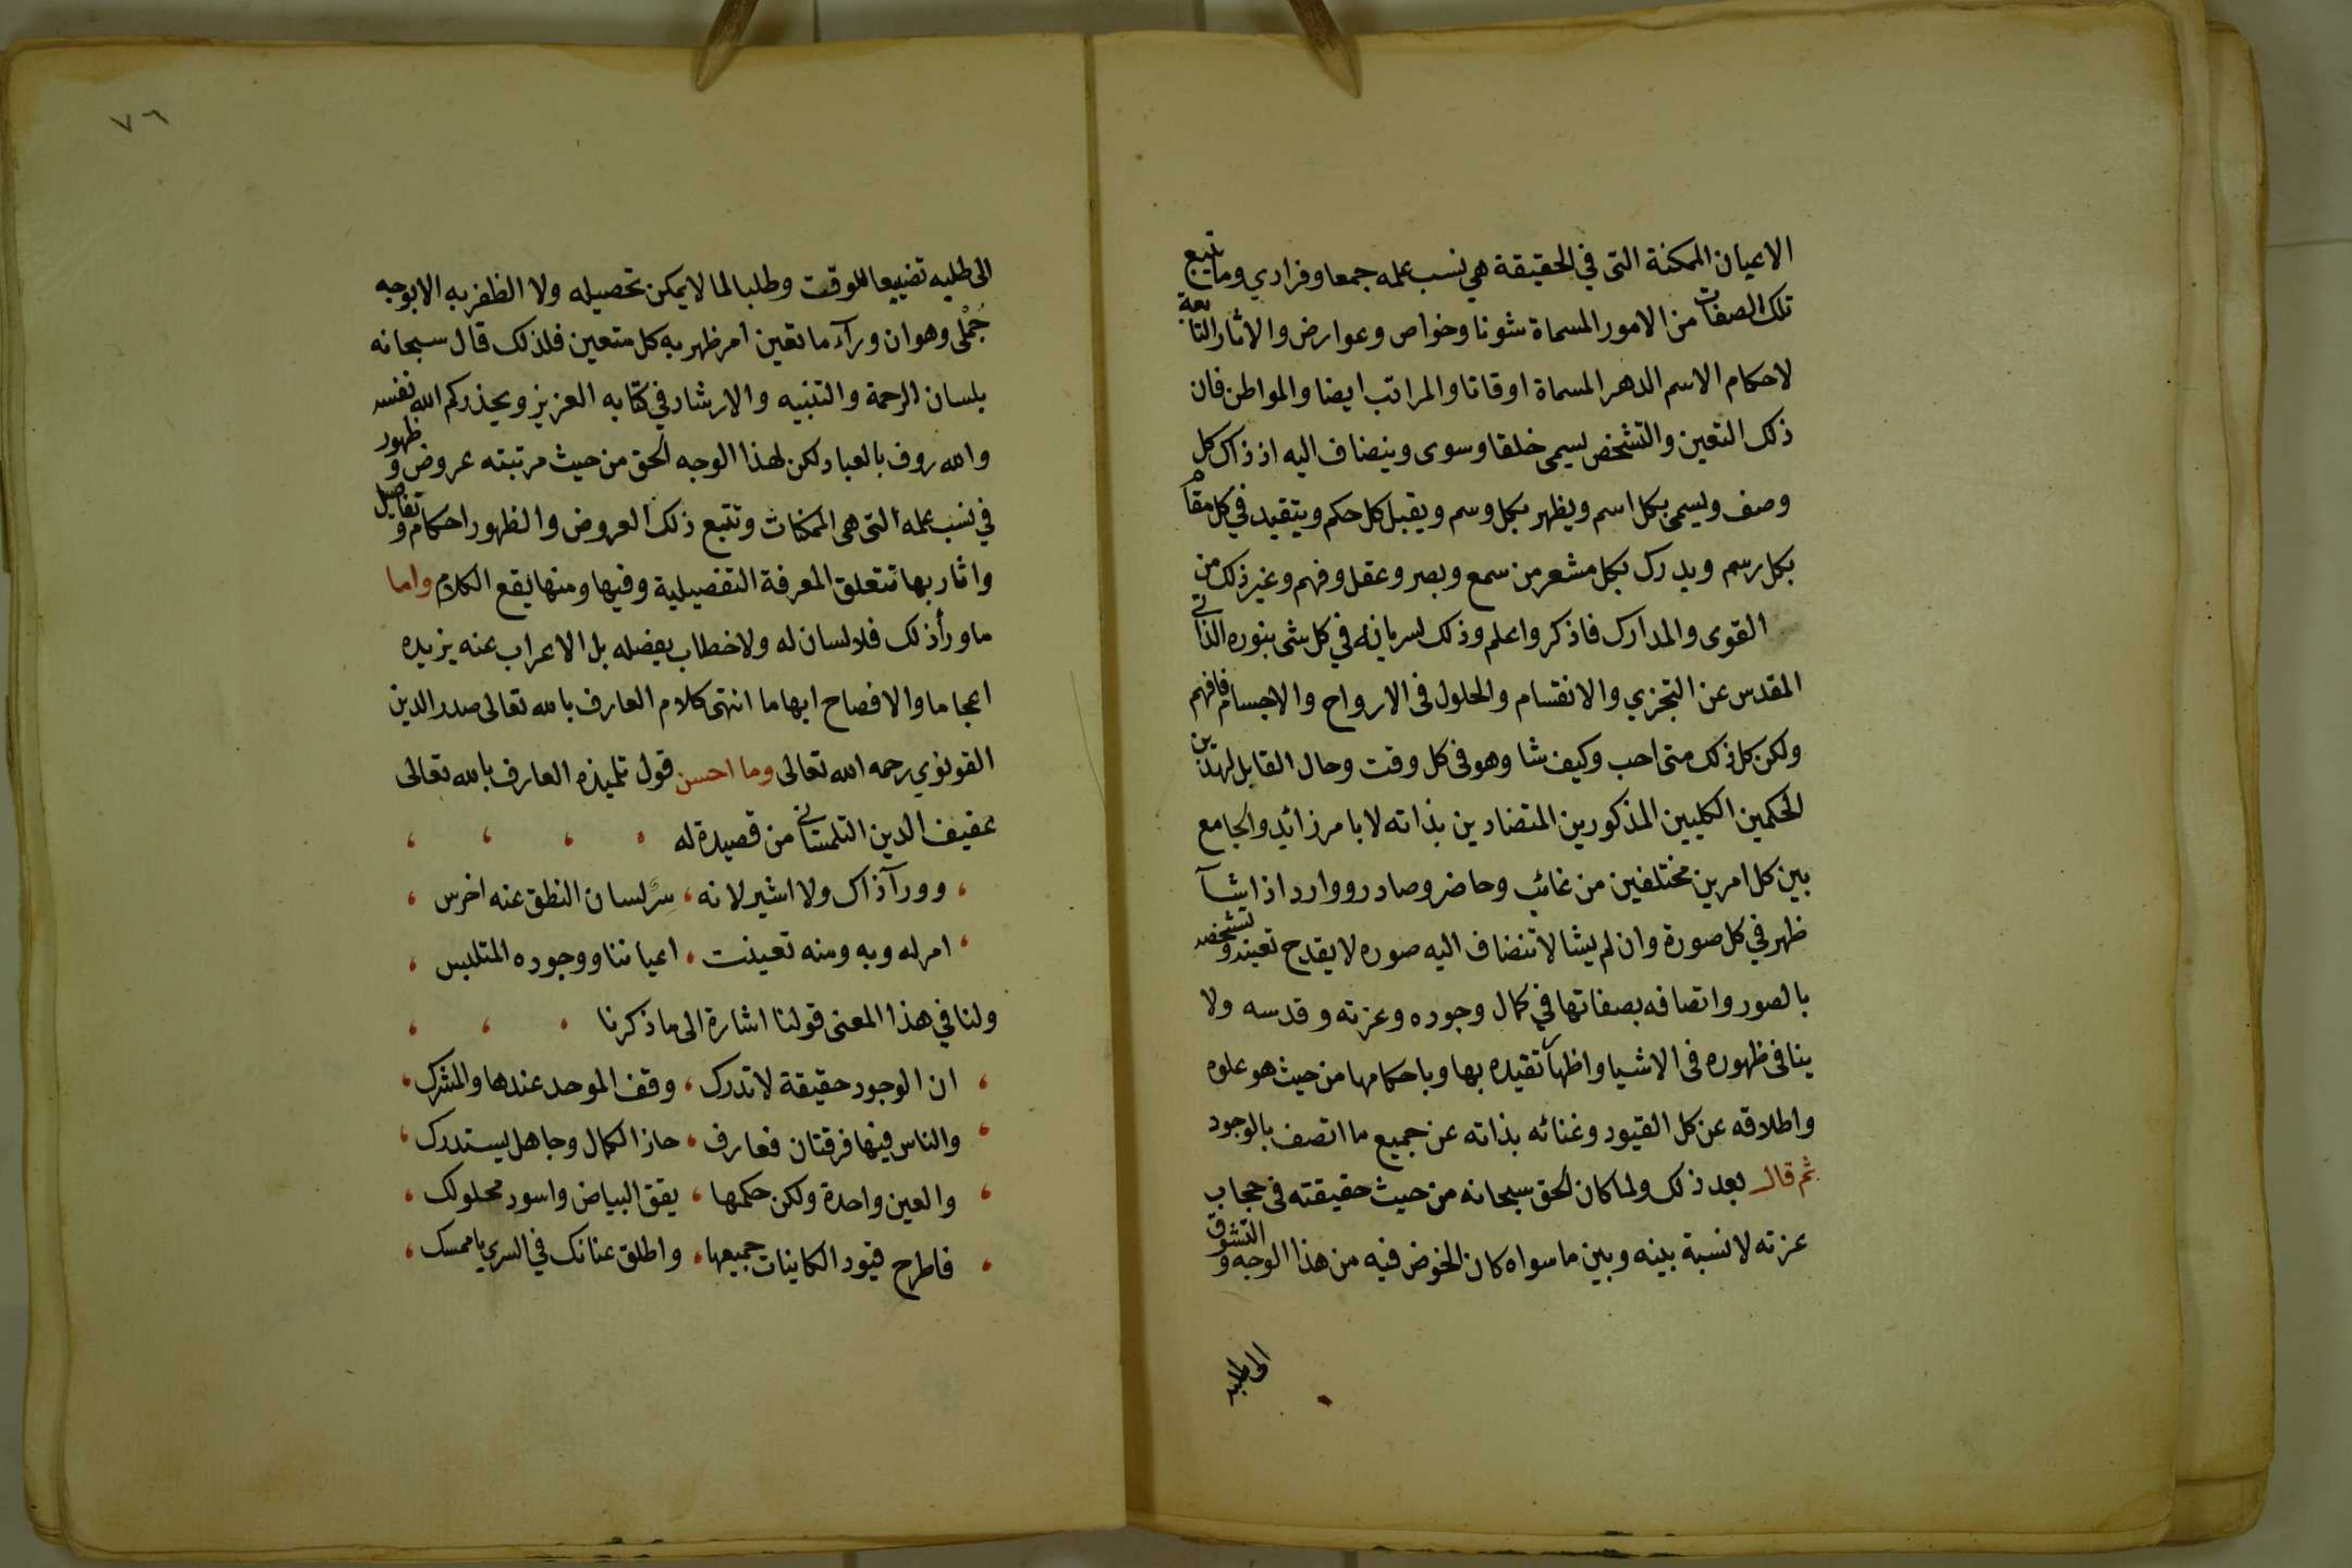 الاعيان الممكنة التى في الحقيقة هي نسب علمه جمعا وفرادي وما يتبع
تلك الصفات من الامور المسماة شونا وخواص وعوارض والاثار التابعة
لاحكام الاسم الدهر المسماة اوقاتا والمراتب ايضا والمواطن فان
ذلك التعين والتشخص يسمى خلقا وسوى وينضاف اليه اذ ذاك كل
وصف ويسمى بكل اسم ويظهر بكل وسم ويقبل كل حكم ويتقيد في كل مقام
بكل رسم ويدرك بكل مشعر من سمع وبصر وعقل وفهم وغير ذلك من
القوى والمدارك فاذكر واعلم وذلك لسريانه في كل شى بنوره الذاتي
المقدس عن التجزي والانقسام والحلول فى الارواح والاجسام فافهم
ولكن كل ذلك متى احب وكيف شا وهو فى كل وقت وحال القابل لهذين
الحكمين الكليين المذكورين المتضادين بذاته لا بامر زائد والجامع
بين كل امرين مختلفين من غائب وحاضر وصادر ووارد اذا شآ
ظهر في كل صورة وان لم يشا لا تنضاف اليه صوره لا يقدح تعينه وتشخصه
بالصور واتصافه بصفاتها في كمال وجوده وعزته وقدسه ولا
ينافى ظهوره فى الاشيا واظهار تقيده بها وباحكامها من حيث هو علوه
واطلاقه عن كل القيود وغنائه بذاته عن جميع ما اتصف بالوجود
ثم قال بعد ذلك ولما كان الحق سبحانه من حيث حقيقته فى حجاب
عزته لا نسبة بينه وبين ما سواه كان الخوض فيه من هذا الوجه والتشوق
الى طلبه
٧٦
الى طلبه تضييعا للوقت وطلبا لما لا يمكن تحصيله ولا الظفر به الا بوجه
جُمْلى وهو ان ورآء ما تعين امر ظهر به كل متعين فلذلك قال سبحانه
بلسان الرحمة والتنبيه والارشاد في كتابه العزيز ويحذركم الله نفسه
والله روف بالعباد لكن لهذا الوجه الحق من حيث مرتبته عروض وظهور
في نسب علمه التى هى الممكنات وتتبع ذلك العروض والظهور احكام وتفاصيل
واثار بها تتعلق المعرفة التفضيلية وفيها ومنها يقع الكلام واما
ما ورأ ذلك فلا لسان له ولا خطاب يفضله بل الاعراب عنه يزيده
اعجاما والافصاح ابهاما انتهى كلام العارف بالله تعالى صدر الدين
القونوي رحمه الله تعالى وما احسن قول تلميذه العارف بالله تعالى
عفيف الدين التلمسانى من قصيدة له
وورآ ذاك ولا اشير لانه ، سرّ لسان النطق عنه اخرس
امر له وبه ومنه تعينت ، اعياننا ووجوده المتلبس
ولنا في هذا المعنى قولنا اشارة الى ما ذكرنا
ان الوجود حقيقة لا تدرك ، وقف الموحد عندها والمشرك
والناس فيها فرقتان فعارف ، حاز الكمال وجاهل يستدرك
والعين واحدة ولكن حكمها ، يقق البياض واسود محلولك
فاطرح قيود الكاينات جميعها ، واطلق عنانك في السري يا ممسك